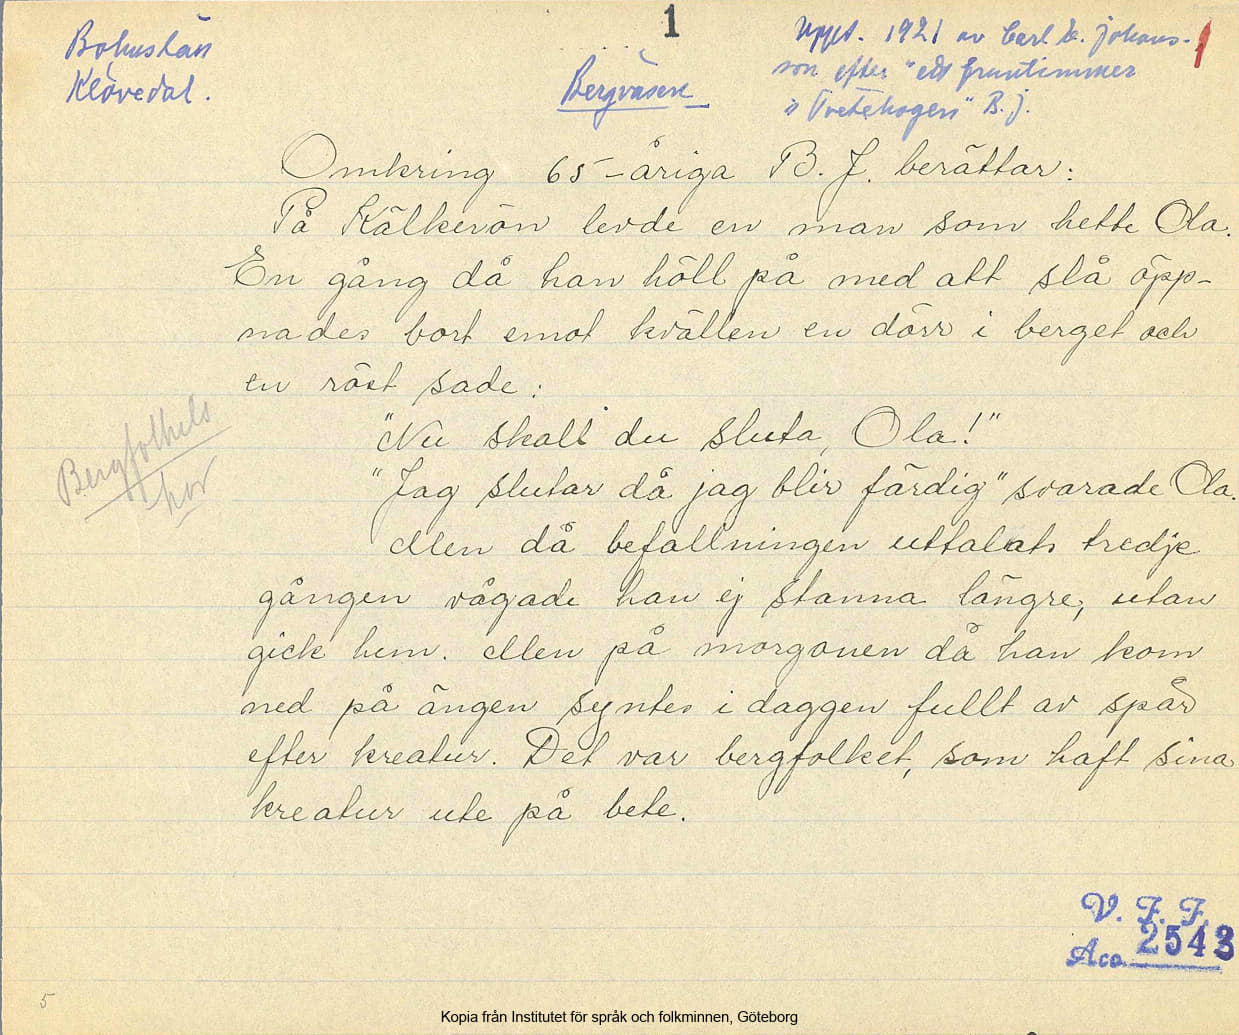 1
Bohuslän
Klövedal.
Bergväsen
Uppt. 1921 av Carl E. Johans-
son efter "ett fruntimmer
i Tvetehogen" B. J.
Omkring 65-åriga B. J. berättar:
På Kälkerön levde en man som hette Ola.
En gång då han höll på med att slå öpp-
nades bort emot kvällen en dörr i berget och
en röst sade:
"Nu skall du sluta, Ola!"
"Jag slutar då jag blir färdig" svarade Ola.
Men då befallningen uttalats tredje
gången vågade han ej stanna längre, utan
gick hem. Men på morgonen då han kom
ned på ängen syntes i daggen fullt av spår
efter kreatur. Det var bergfolket, som haft sina
kreatur ute på bete.
Bergfolkets
V. F. F.
Acc. 2543
5
Kopia från Institutet för språk och folkminnen, Göteborg